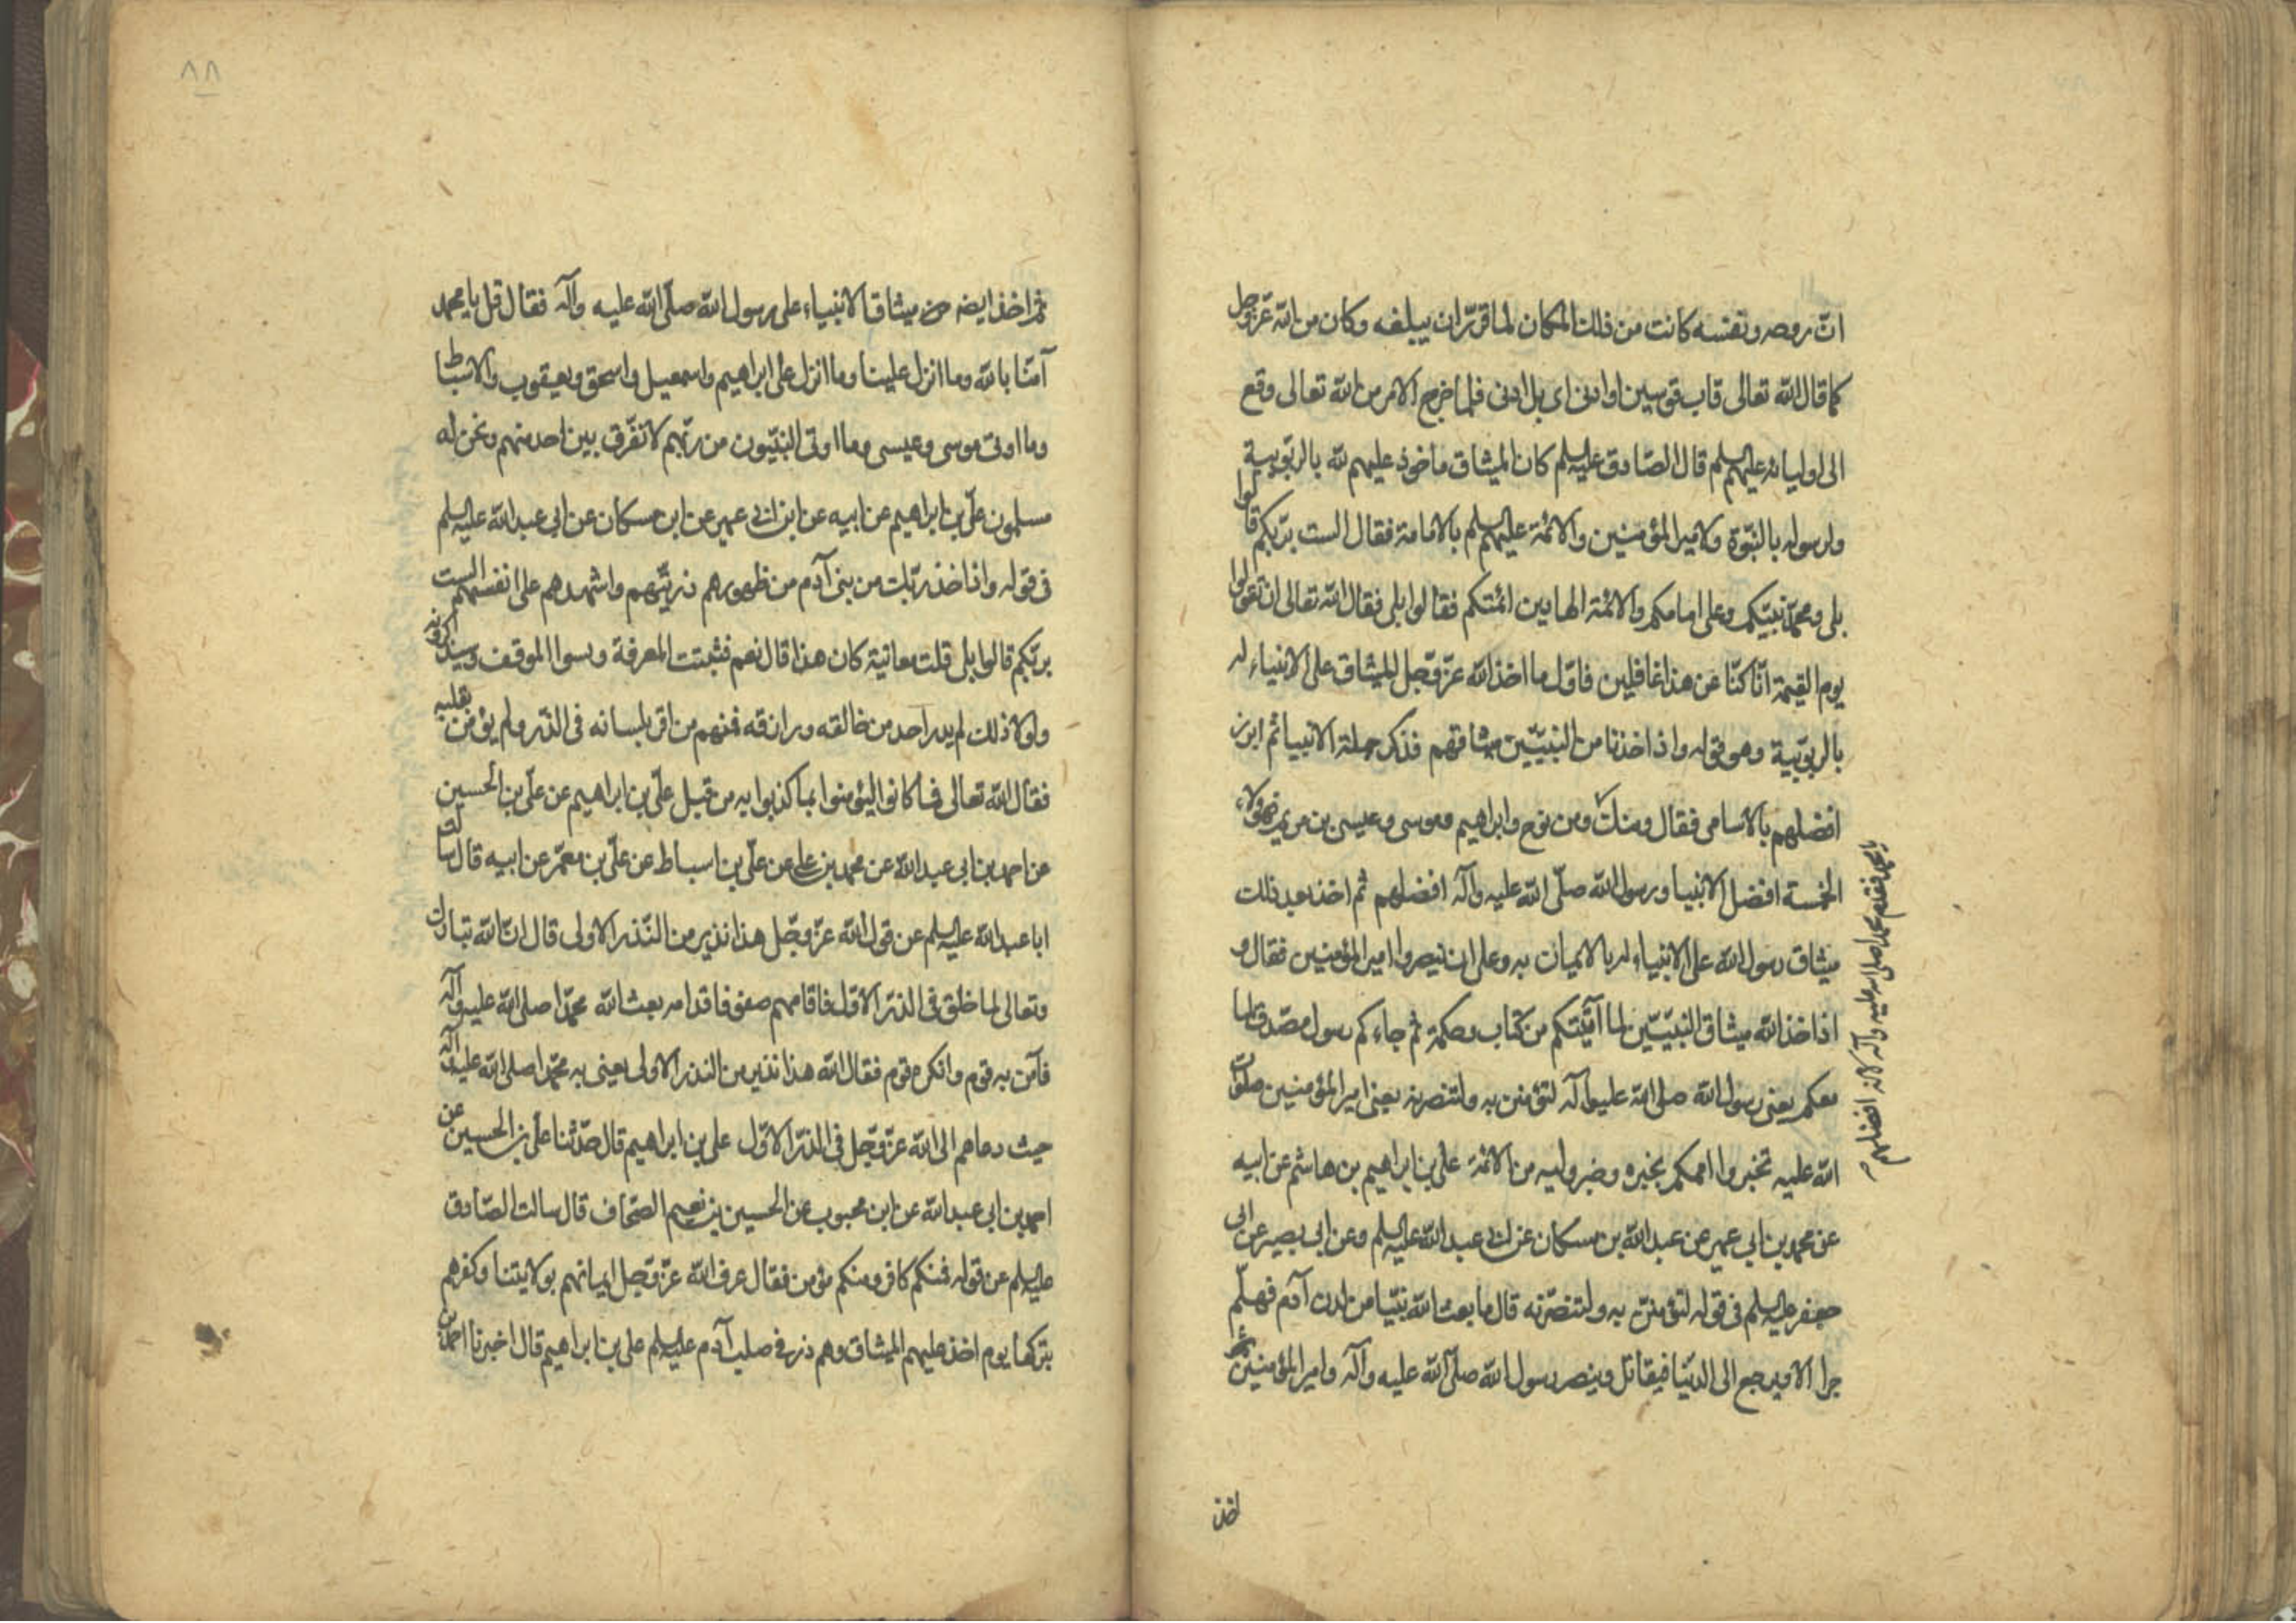 ان روحه ونفسه كانت من ذلك المكان لما قدر ان يبلغه وكان من الله عز وجل
كما قال الله تعالى قاب قوسين او ادنى اى بل ادنى فلما خرج الامر من الله تعالى وقع
الى اوليائه عليهم السلم قال الصّادق عليه السلم كان الميثاق ماخوذ عليهم لله بالربوبية
ولرسوله بالنبّوة ولامير المؤمنين والائمة عليهم السلم بالامامة فقال الست بربّكم قالوا
بلى ومحمّد نبيّكم وعلى امامكم والائمة الهادين ائمتكم فقالوا بلى فقال الله تعالى ان تقولوا
يوم القيمة انّا كنّا عن هذا غافلين فاوّل ما اخذ الله عزّ وجّل الميثاق على الانبياء له
بالربوبّية وهو قوله واذ اخذنا من النبيّين ميثاقهم فذكر جملة الانبيا ثم ابرز
افضلهم بالاسامى فقال ومنك ومن نوح وابراهيم وموسى وعيسى بن مريم فهؤلاء
الخمسة افضل الانبيا ورسول الله صلّى الله عليه وآله افضلهم ثم اخذ بعد ذلك
ميثاق رسول الله على الانبياء له بالايمان به وعلى ان ينصروا امير المؤمنين فقال و
اذ اخذ الله ميثاق النبيّين لما آتيتكم من كتاب وحكمة ثم جاءكم رسول مصدّق لما
معكم يعنى رسول الله صلى الله عليه وآله لتؤمنن به ولتنصرنه يعنى امير المؤمنين صلوات
الله عليه تخبروا اممكم بخبره وخبر وليه من الائمة على بن ابراهيم بن هاشم عن ابيه
عن محمد بن ابى عمير عن عبد الله بن مسكان عن ابى عبد الله عليه السلم وعن ابى بصير عن ابى
جعفر عليه السلم فى قوله لتؤمننّ به ولتنصرّنه قال ما بعث الله نبيّا من لدن آدم فهلّم
جرا الا ويرجع الى الدنّيا فيقاتل وينصر رسول الله صلّى الله عليه وآله وامير المؤمنين ثم
يا محمد فقدم محمدا صلى الله عليه وآله لانه افضلهم
اخذ
٨٨
ثم اخذ ايضا من ميثاق الانبياء على رسول الله صلّى الله عليه وآله فقال قل يا محمد
آمنّا بالله وما انزل علينا وما انزل على ابراهيم واسمعيل واسحق ويعقوب والاسباط
وما اوتى موسى وعيسى وما اوتى النبيّون من ربّهم لا نفّرق بين احد منهم ونحن له
مسلمون علّى بن ابراهيم عن ابيه عن ابن ابى عمير عن ابن مسكان عن ابى عبد الله عليه السلم
فى قوله واذ اخذ ربّك من بنى آدم من ظهورهم ذريّتهم واشهدهم على انفسهم الست
بربّكم قالوا بلى قلت معاينة كان هذا قال نعم فثبتت المعرفة ونسوا الموقف وسيذكرونه
ولولا ذلك لم يدر احد من خالقه ورازقه فمنهم من اقر بلسانه فى الذّر ولم يؤمن بقلبه
فقال الله تعالى فما كانوا ليؤمنوا بما كذبوا به من قبل علّى بن ابراهيم عن علّى بن الحسين
عن احمد بن ابى عبد الله عن محمد بن على عن علّى بن اسباط عن علّى بن معمّر عن ابيه قال سالت
ابا عبد الله عليه السلم عن قول الله عزّ وجّل هذا نذير من النّذر الاولى قال انّ الله تبارك
وتعالى لما خلق فى الذر الاوّل فاقامهم صفوفا قدامه بعث الله محمّدا صلى الله عليه وآله
فآمن به قوم وانكره قوم فقال الله هذا نذير من النذر الاولى يعنى به محمّدا صلى الله عليه وآله
حيث دعاهم الى الله عزّ وجّل فى الذرّ الاوّل على بن ابراهيم قال حدّثنا علّى بن الحسين عن
احمد بن ابى عبد الله عن ابن محبوب عن الحسين بن نعيم الصّحاف قال سالت الصّادق
عليه السلم عن قوله فمنكم كافر ومنكم مؤمن فقال عرف الله عزّ وجل ايمانهم بولايتنا وكفرهم
بتركها يوم اخذ عليهم الميثاق وهم ذر فى صلب آدم عليه السلم على بن ابراهيم قال اخبرنا احمد بن